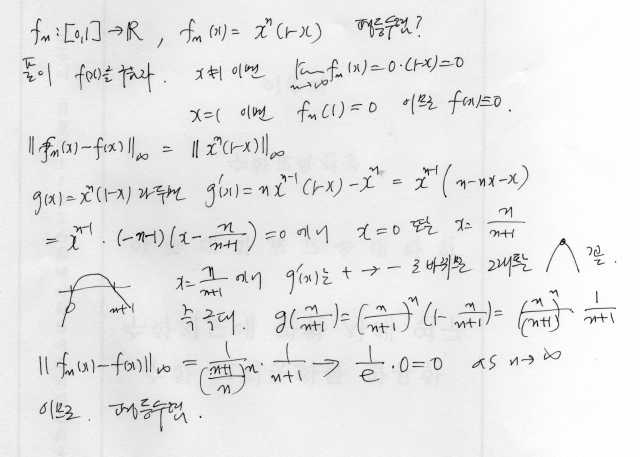 fₙ : [0,1] → ℝ , fₙ(x) = xⁿ(1-x) 평등수렴?
풀이 f(x)를 구하라. x≠1 이면 lim_{n→∞} fₙ(x) = 0·(1-x) = 0
x=1 이면 fₙ(1) = 0 이므로 f(x) ≡ 0.
‖fₙ(x) - f(x)‖∞ = ‖xⁿ(1-x)‖∞
g(x) = xⁿ(1-x) 라두면 g'(x) = n xⁿ⁻¹(1-x) - xⁿ = xⁿ⁻¹(n-nx-x)
= xⁿ⁻¹ · (-n-1)(x - n/(n+1)) = 0 에서 x=0 또는 x = n/(n+1)
0 n/(n+1) x = n/(n+1) 에서 g'(x)는 + → - 로 바뀌므로 그래프는 꼴.
즉 극대. g(n/(n+1)) = (n/(n+1))ⁿ (1 - n/(n+1)) = (n/(n+1))ⁿ · 1/(n+1)
‖fₙ(x) - f(x)‖∞ = 1/((n+1)/n)ⁿ · 1/(n+1) → 1/e · 0 = 0 as n → ∞
이므로. 평등수렴.